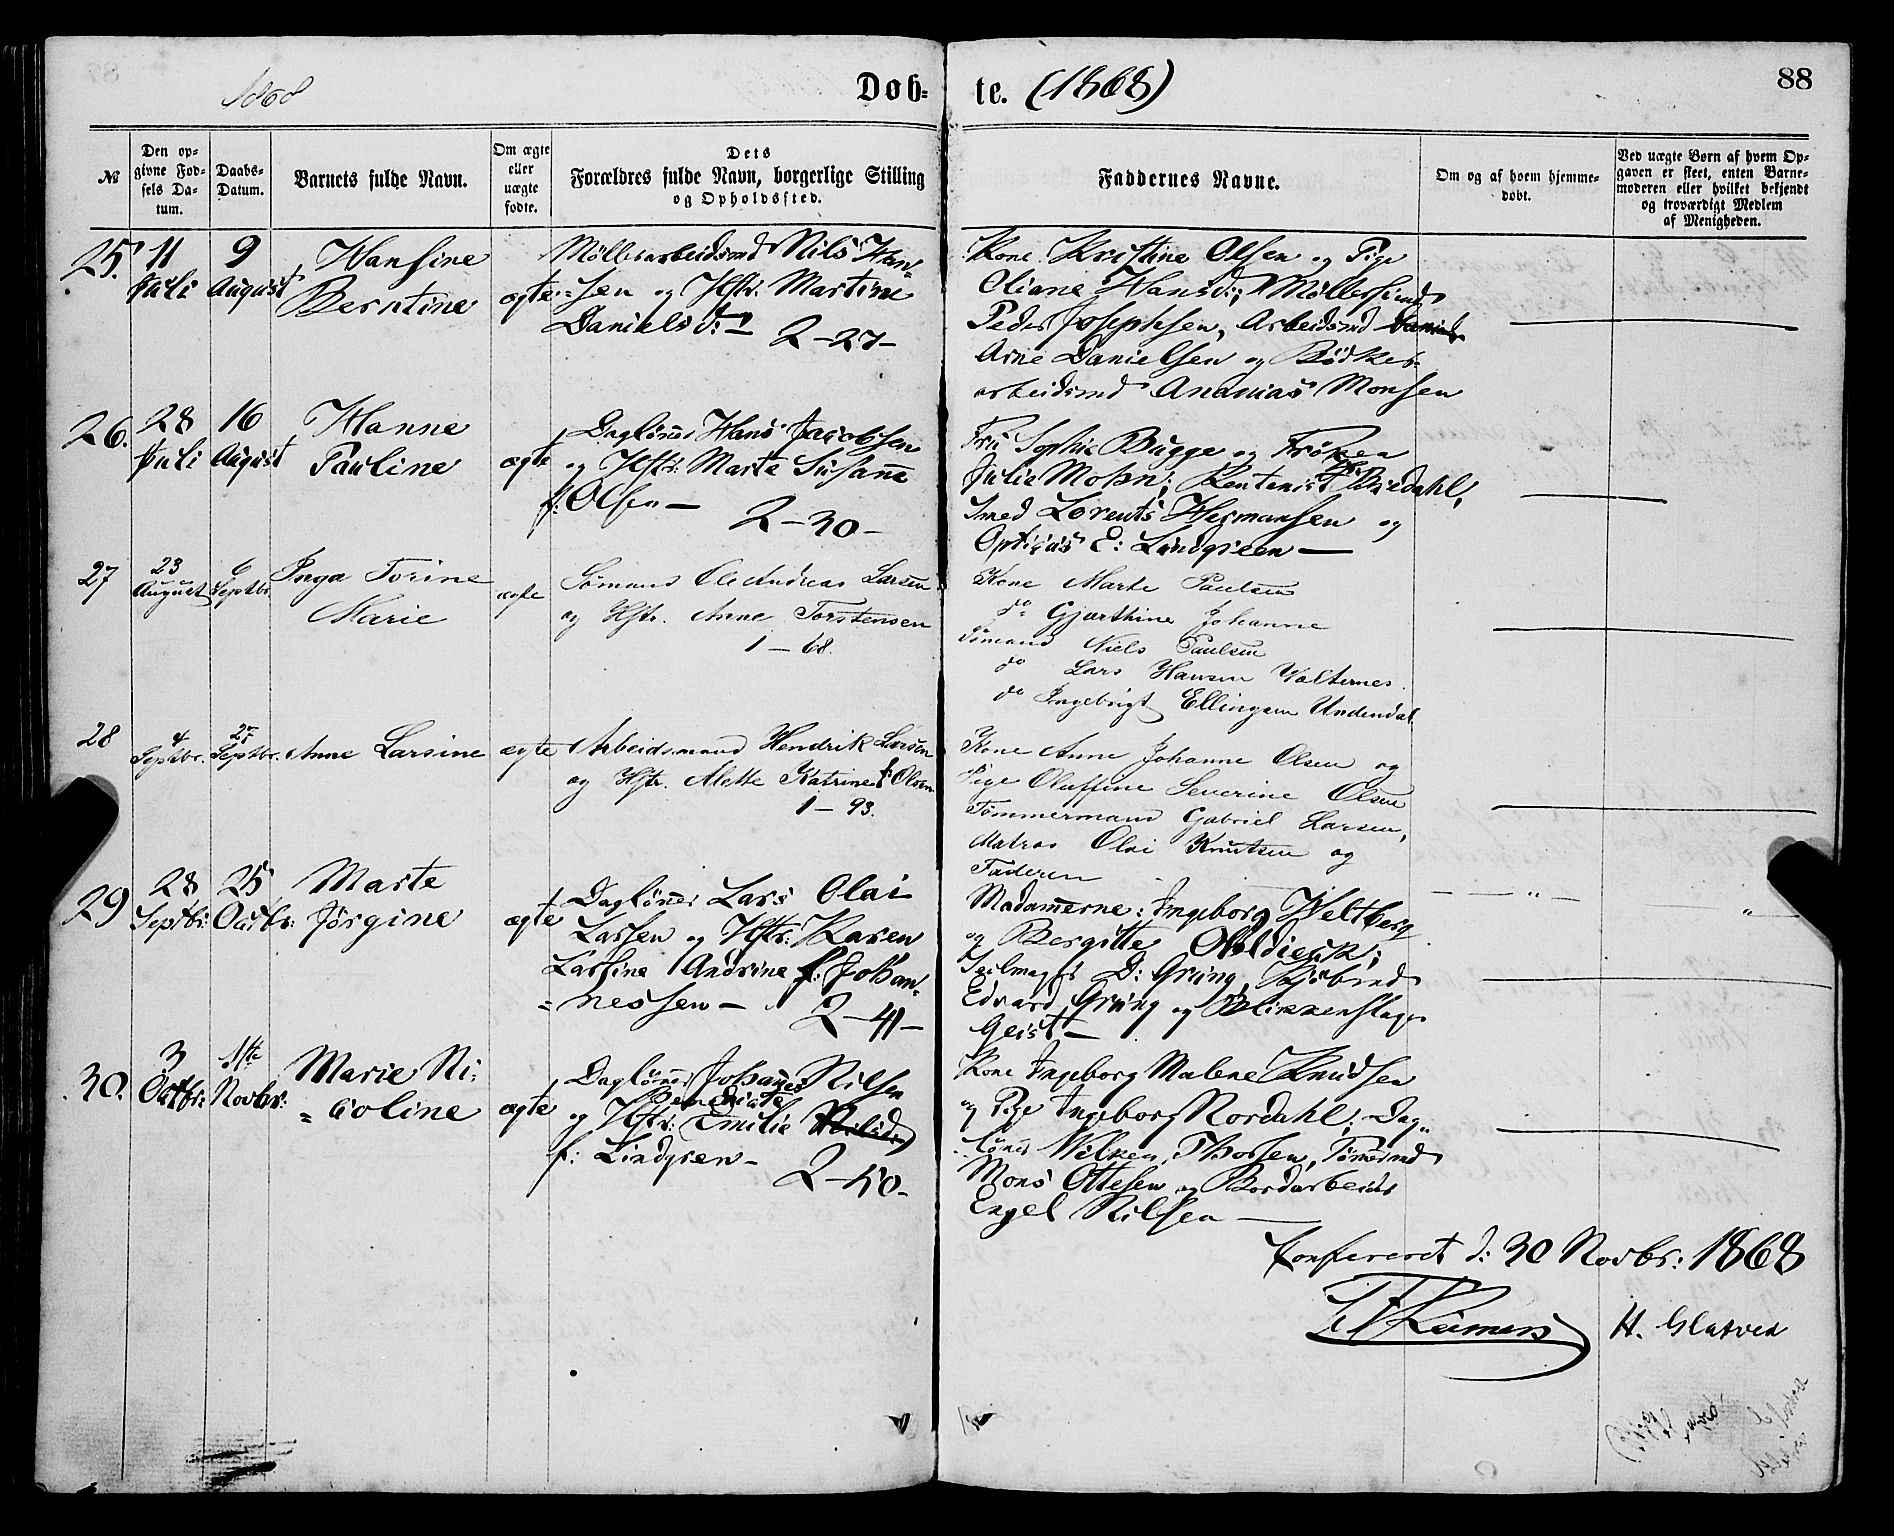 1868
Døb- te. (1868) 88
№
Den op-
givne Fød-
sels Da-
tum.
Daabs-
Datum.
Barnets fulde Navn.
Om ægte
eller
uægte
fødte.
Dets
Forældres fulde Navn, borgerlige Stilling
og Opholdssted.
Faddernes Navne.
Om og af hvem hjemme-
døbt.
Ved uægte Børn af hvem Op-
gaven er skeet, enten Barne-
moderen eller hvilket bekjendt
og troværdigt Medlem
af Menigheden.
25.
11
Juli
9
August
Hansine
Berntine
ægte
Møllerarbeidsmd Nils Han-
=sen og Hstr: Martine
Danielsd:
2-27-
Kone Kristine Olsen og Pige
Oliane Hansd:, Møllersvend
Peder Josephsen, Arbeidsmd Daniels
Arne Danielsen og Bødker-
arbeidsmd Ananias Monsen
26.
28
Juli
16
August
Hanne
Pauline
ægte
Daglønner Hans Jacobsen
og Hstr: Marte Susanne
f: Olsen —
2-30-
Fru Sophie Bugge og Frøken
Julie Mohn; Rentenist Bredahl,
Smed Lorents Hermansen og
Opticus E: Lindgreen —
27
23
August
6
Septbr.
Inga Torine
Marie
ægte
Sømand Ole Andreas Larsen
og Hstr. Anne Torstensen
1-68.
Kone Marte Paulsen
do Gjørthine Johanne
Sømand Niels Paulsen
do Lars Hansen Valternes.
do Ingebrigt Ellingsen Undendal
28
4
Septbr.
27
Septbr.
Anne Larsine
ægte
Arbeidsmand Hendrik Larsen
og Hstr. Alette Katrine f: Olsen
1-93.
Kone Anne Johanne Olsen og
Pige Oluffine Severine Olsen
Tømmermand Gabriel Larsen,
Matros Olai Knutsen og
Faderen
29
28
Septbr:
25
Octbr:
Marte
Jørgine
ægte
Daglønner Lars Olai
Larsen og Hstr: Karen
Larsine Andrine f: Johan-
=nessen —
2-41-
Madamerne: Ingeborg Weltberg
og Bergitte Oldieck;
Seilmager D: Grung, Kjøbmd
Edvard Grung og Blikkenslager
Geist —
30.
3
Octbr:
1ste
Novbr:
Marie Ni-
=coline
ægte
Daglønner Johannes Nilsen
Benedicte
og Hstr: Emilie Nilsd:
f: Lindgren —
2-50-
Kone Ingeborg Malene Knudsen
og Pige Ingeborg Nordahl; Dag-
lønner Wilken Thorsen, Tømmermd
Mons Ottesen og Bordarbeider
Engel Nilsen —
Konfereret d: 30 Novbr: 1868
Reimers H. Glatved